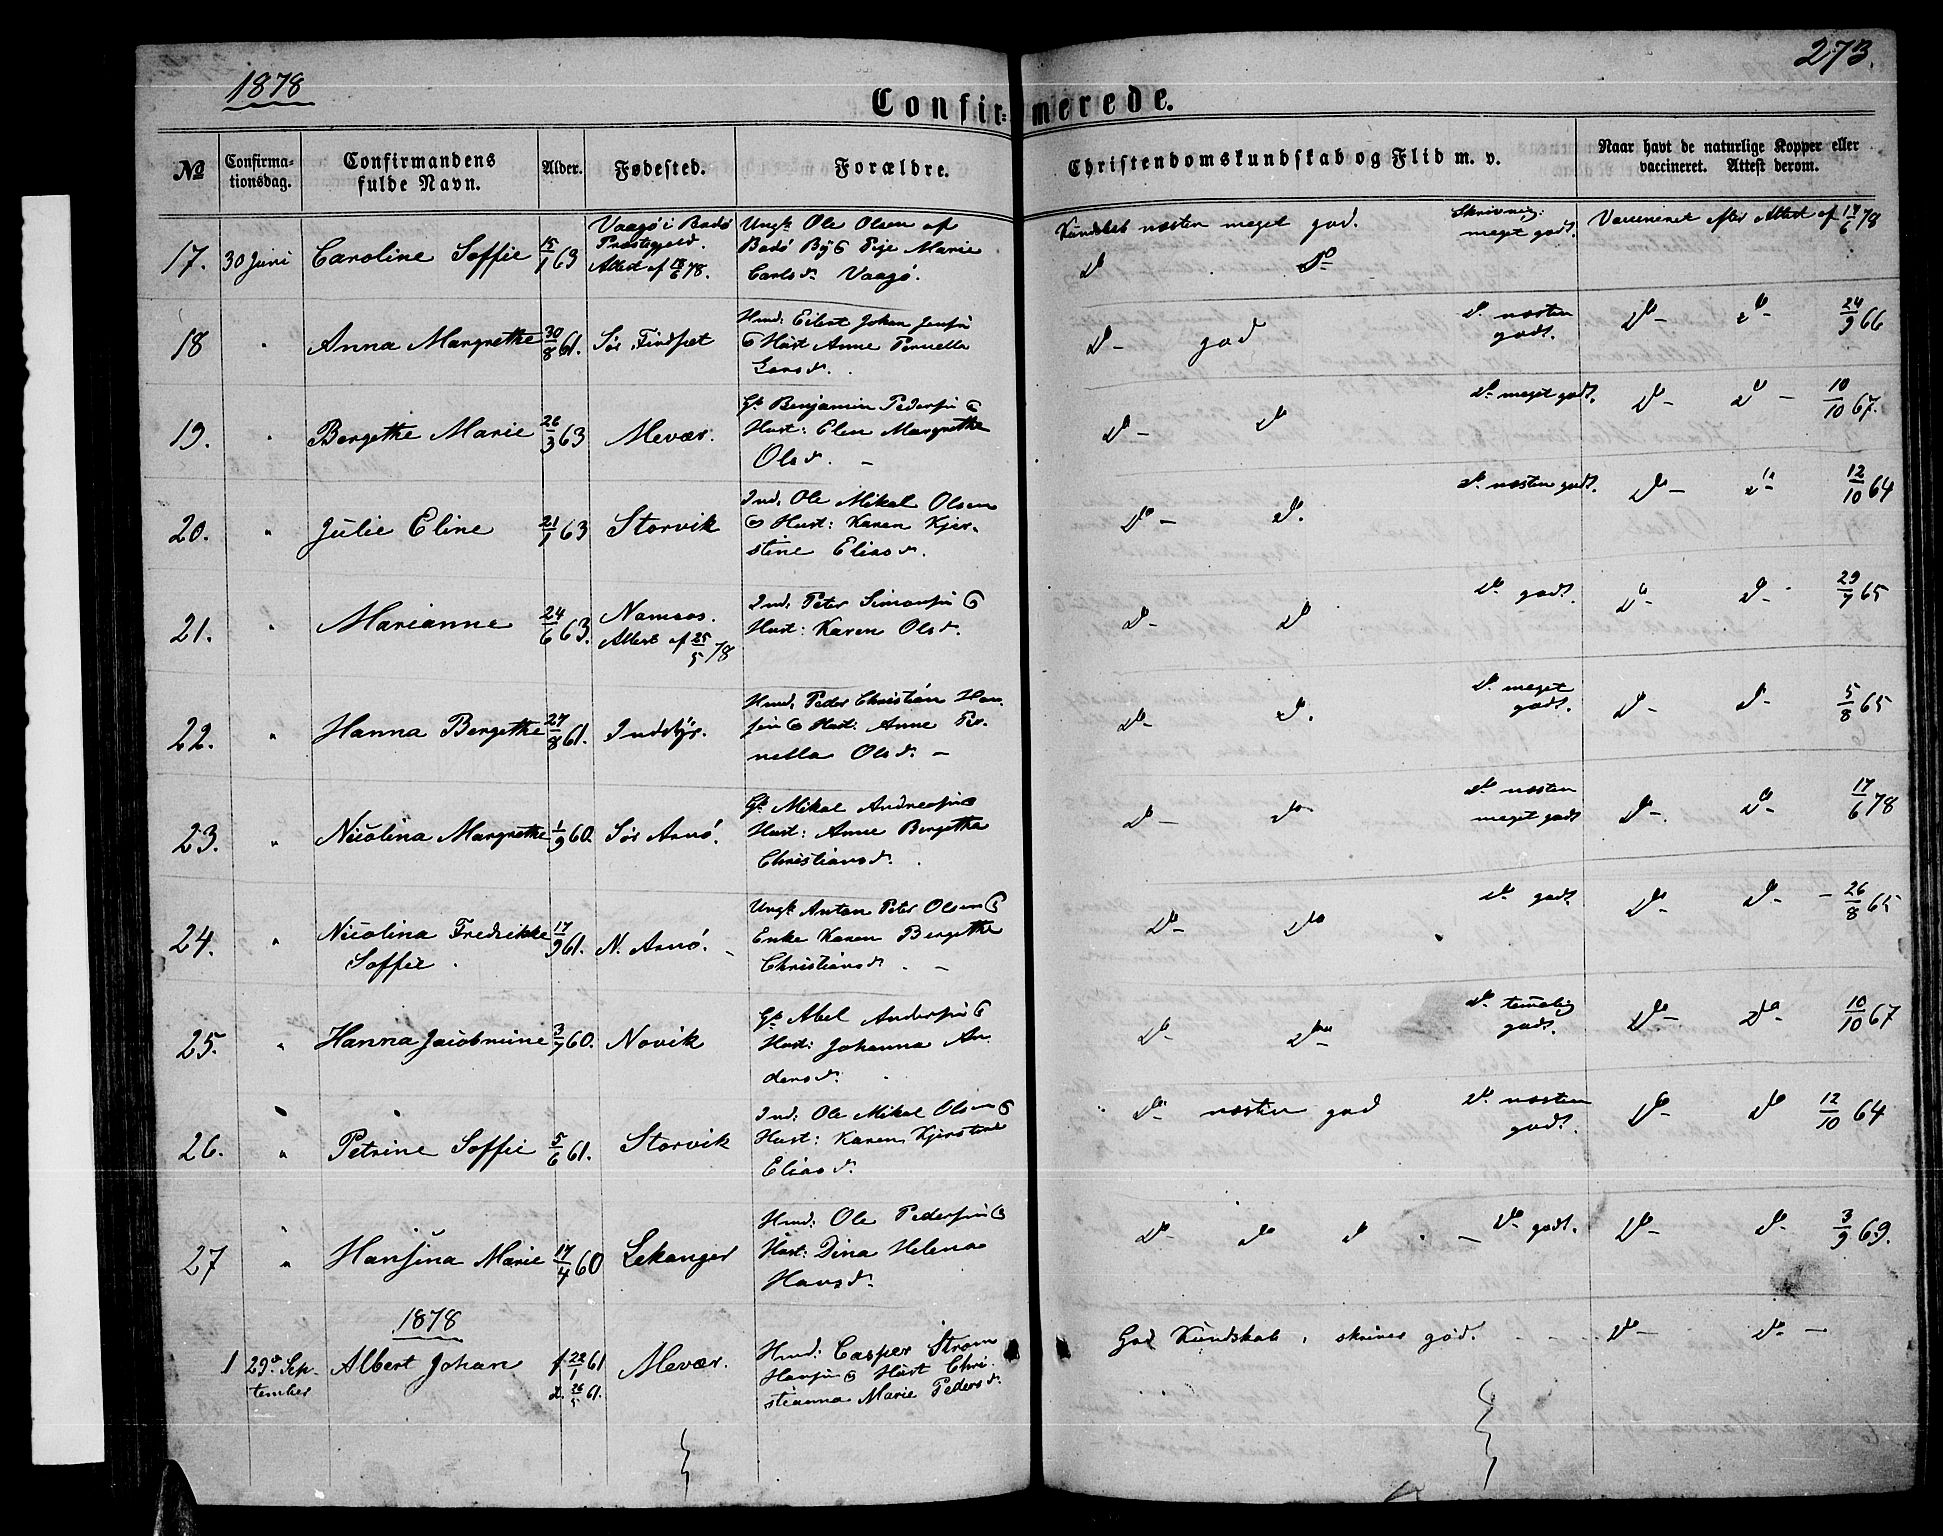 1878
273.
Confirmerede.
No
Confirma-
tionsdag.
Confirmandens
fulde Navn.
Alder.
Fødested.
Forældre.
Christendomskundskab og Flid m. v.
Naar havt de naturlige Kopper eller
vaccineret. Attest derom.
17. 30 Juni Caroline Soffie 15/1 63
Vaagø i Bodø
Præstegjeld.
Attest af 18/6 78.
Ungk. Ole Olsen af
Bodø By & Pige Marie
Carlsd. Vaagø.
Kundskab næsten meget god.
Do Do
Skrivning:
meget godt.
Vaccineret efter Attest af 17/6 78
18 " Anna Margrethe 30/8 61. Sør Findset
Hmd: Eilert Johan Jensen
& Hust Anne Pernella
Larsd.
Do god
Do næsten
godt.
Do Do 24/9 66
19. " Bergethe Marie 26/3 63 Mevær.
Gb. Benjamin Pedersen &
Hust: Elen Margrethe
Olsd.
Do Do
Do meget godt.
Do Do 10/10 67.
20. " Julie Eline 21/1 63 Storvik
Ind. Ole Mikal Olsen
& Hust: Karen Kjer-
stine Eliasd.
Do Do
Do næsten godt.
Do Do 12/10 64
21. " Marianne 24/6 63.
Namsos.
Attest af 25/5 78
Ind: Peter Simonsen &
Hust: Karen Olsd.
Do Do
Do godt.
Do Do 29/7 65
22. " Hanna Bergethe 27/8 61. Inddyr.
Hmd. Peder Christian Han-
sen & Hust: Anne Per-
nella Olsd.
Do Do
Do meget
godt.
Do Do 5/8 65
23. " Nicolina Margrethe 1/9 60. Sør Arnø.
Gb. Mikal Andreasen &
Hust: Anne Bergetha
Christiansd.
Do Do
Do næsten
meget godt
Do Do 17/6 78
24. " Nicolina Fredrikke
Soffie
17/9 61. N. Arnø.
Ungk Anton Peter Olsen &
Enke Karen Bergethe
Christiansd.
Do Do
Do godt.
Do Do 26/8 65
25. " Hanna Jacobmine 3/7 60. Novik
Gb. Abel Andersen &
Hust: Johanna An-
dersd.
Do Do
Do temelig
godt.
Do Do 10/10 67
26. " Petrine Soffie 5/6 61. Storvik
Ind: Ole Mikal Olsen &
Hust: Karen Kjerstine
Eliasd.
Do næsten god
Do næsten
godt.
Do Do 12/10 64
27 " Hansina Marie 17/4 60 Lekanger
Hmd: Ole Pedersen &
Hust: Dina Helena
Hansd.
Do Do Do
Do godt.
Do Do 3/9 69.
1878
1 29de Sep-
tember
Albert Johan
f. 22/1 61
d. 26/5 61.
Mevær.
Hmd: Casper Strøm
Hansen & Hust Chri-
stianna Marie Pedersd.
God Kundskab, skriver god.
Do Do